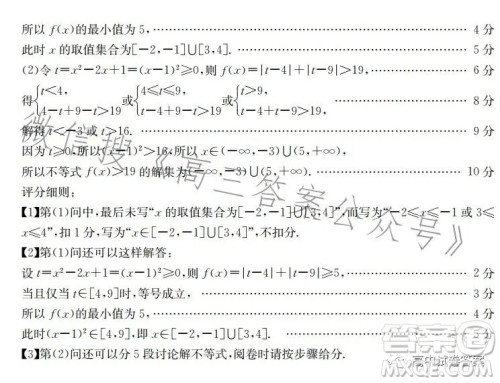 所以 f(x)的最小值为 5, 4 分
此时 x 的取值集合为[-2,-1]∪[3,4]. 5 分
(2)令 t=x²-2x+1=(x-1)²≥0,则 f(x)=|t-4|+|t-9|>19, 6 分
得{t<4, 4-t+9-t>19 或{4≤t≤9, t-4+9-t>19 或{t>9, t-4+t-9>19, 8 分
解得 t<-3 或 t>16. 9 分
因为 t≥0,所以(x-1)²>16,所以 x∈(-∞,-3)∪(5,+∞),
所以不等式 f(x)>19 的解集为(-∞,-3)∪(5,+∞). 10 分
评分细则:
【1】第(1)问中,最后未写“x 的取值集合为[-2,-1]∪[3,4]”,而写为“-2≤x≤-1 或 3≤
x≤4”,扣 1 分,写为“x∈[-2,-1]∪[3,4]”,不扣分.
【2】第(1)问还可以这样解答:
设 t=x²-2x+1=(x-1)²≥0,则 f(x)=|t-4|+|t-9|≥5, 2 分
当且仅当 t∈[4,9]时,等号成立, 3 分
所以 f(x)的最小值为 5, 4 分
此时(x-1)²∈[4,9],即 x∈[-2,-1]∪[3,4].
【3】第(2)问还可以分 5 段讨论解不等式,阅卷时请按步骤给分.
微信搜《高三答案公众号》
高中试卷答案